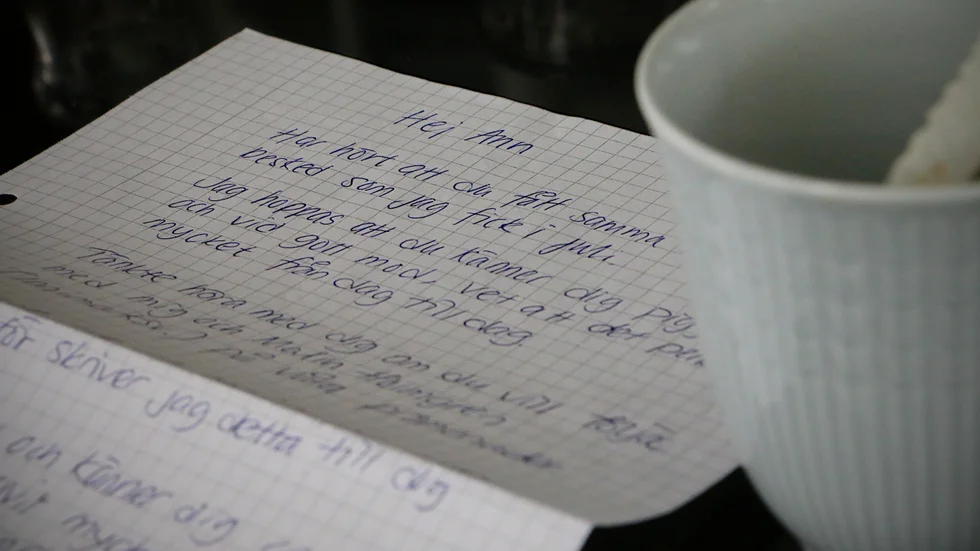 Hej Ann
Har hört att du fått samma
besked som jag fick i juli.
Jag hoppas att du känner dig pigg
och vid gott mod, vet att det
mycket från dag till dag.
Tänkte höra med dig om du vill följa
med mig och Malin
på våra promenader
för skriver jag detta till dig
och känner dig